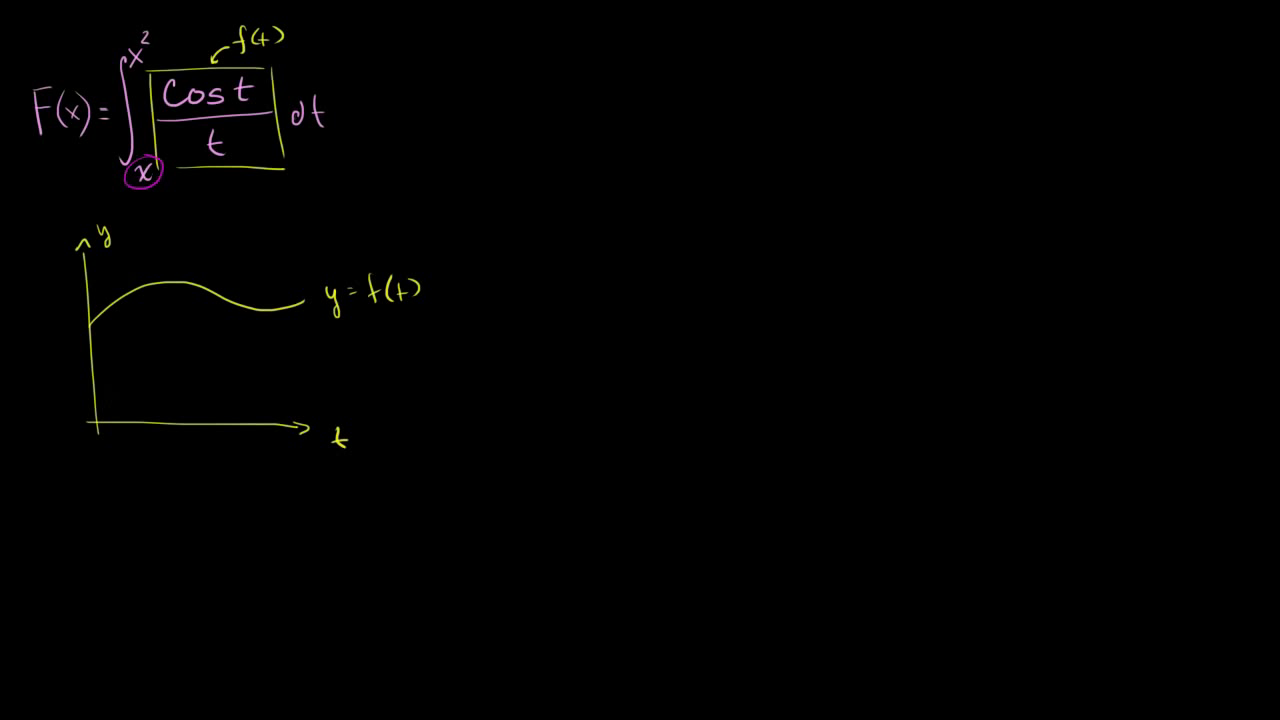 f(t)
F(x) = ∫ₓ^x² cos t / t dt
y
y = f(t)
t